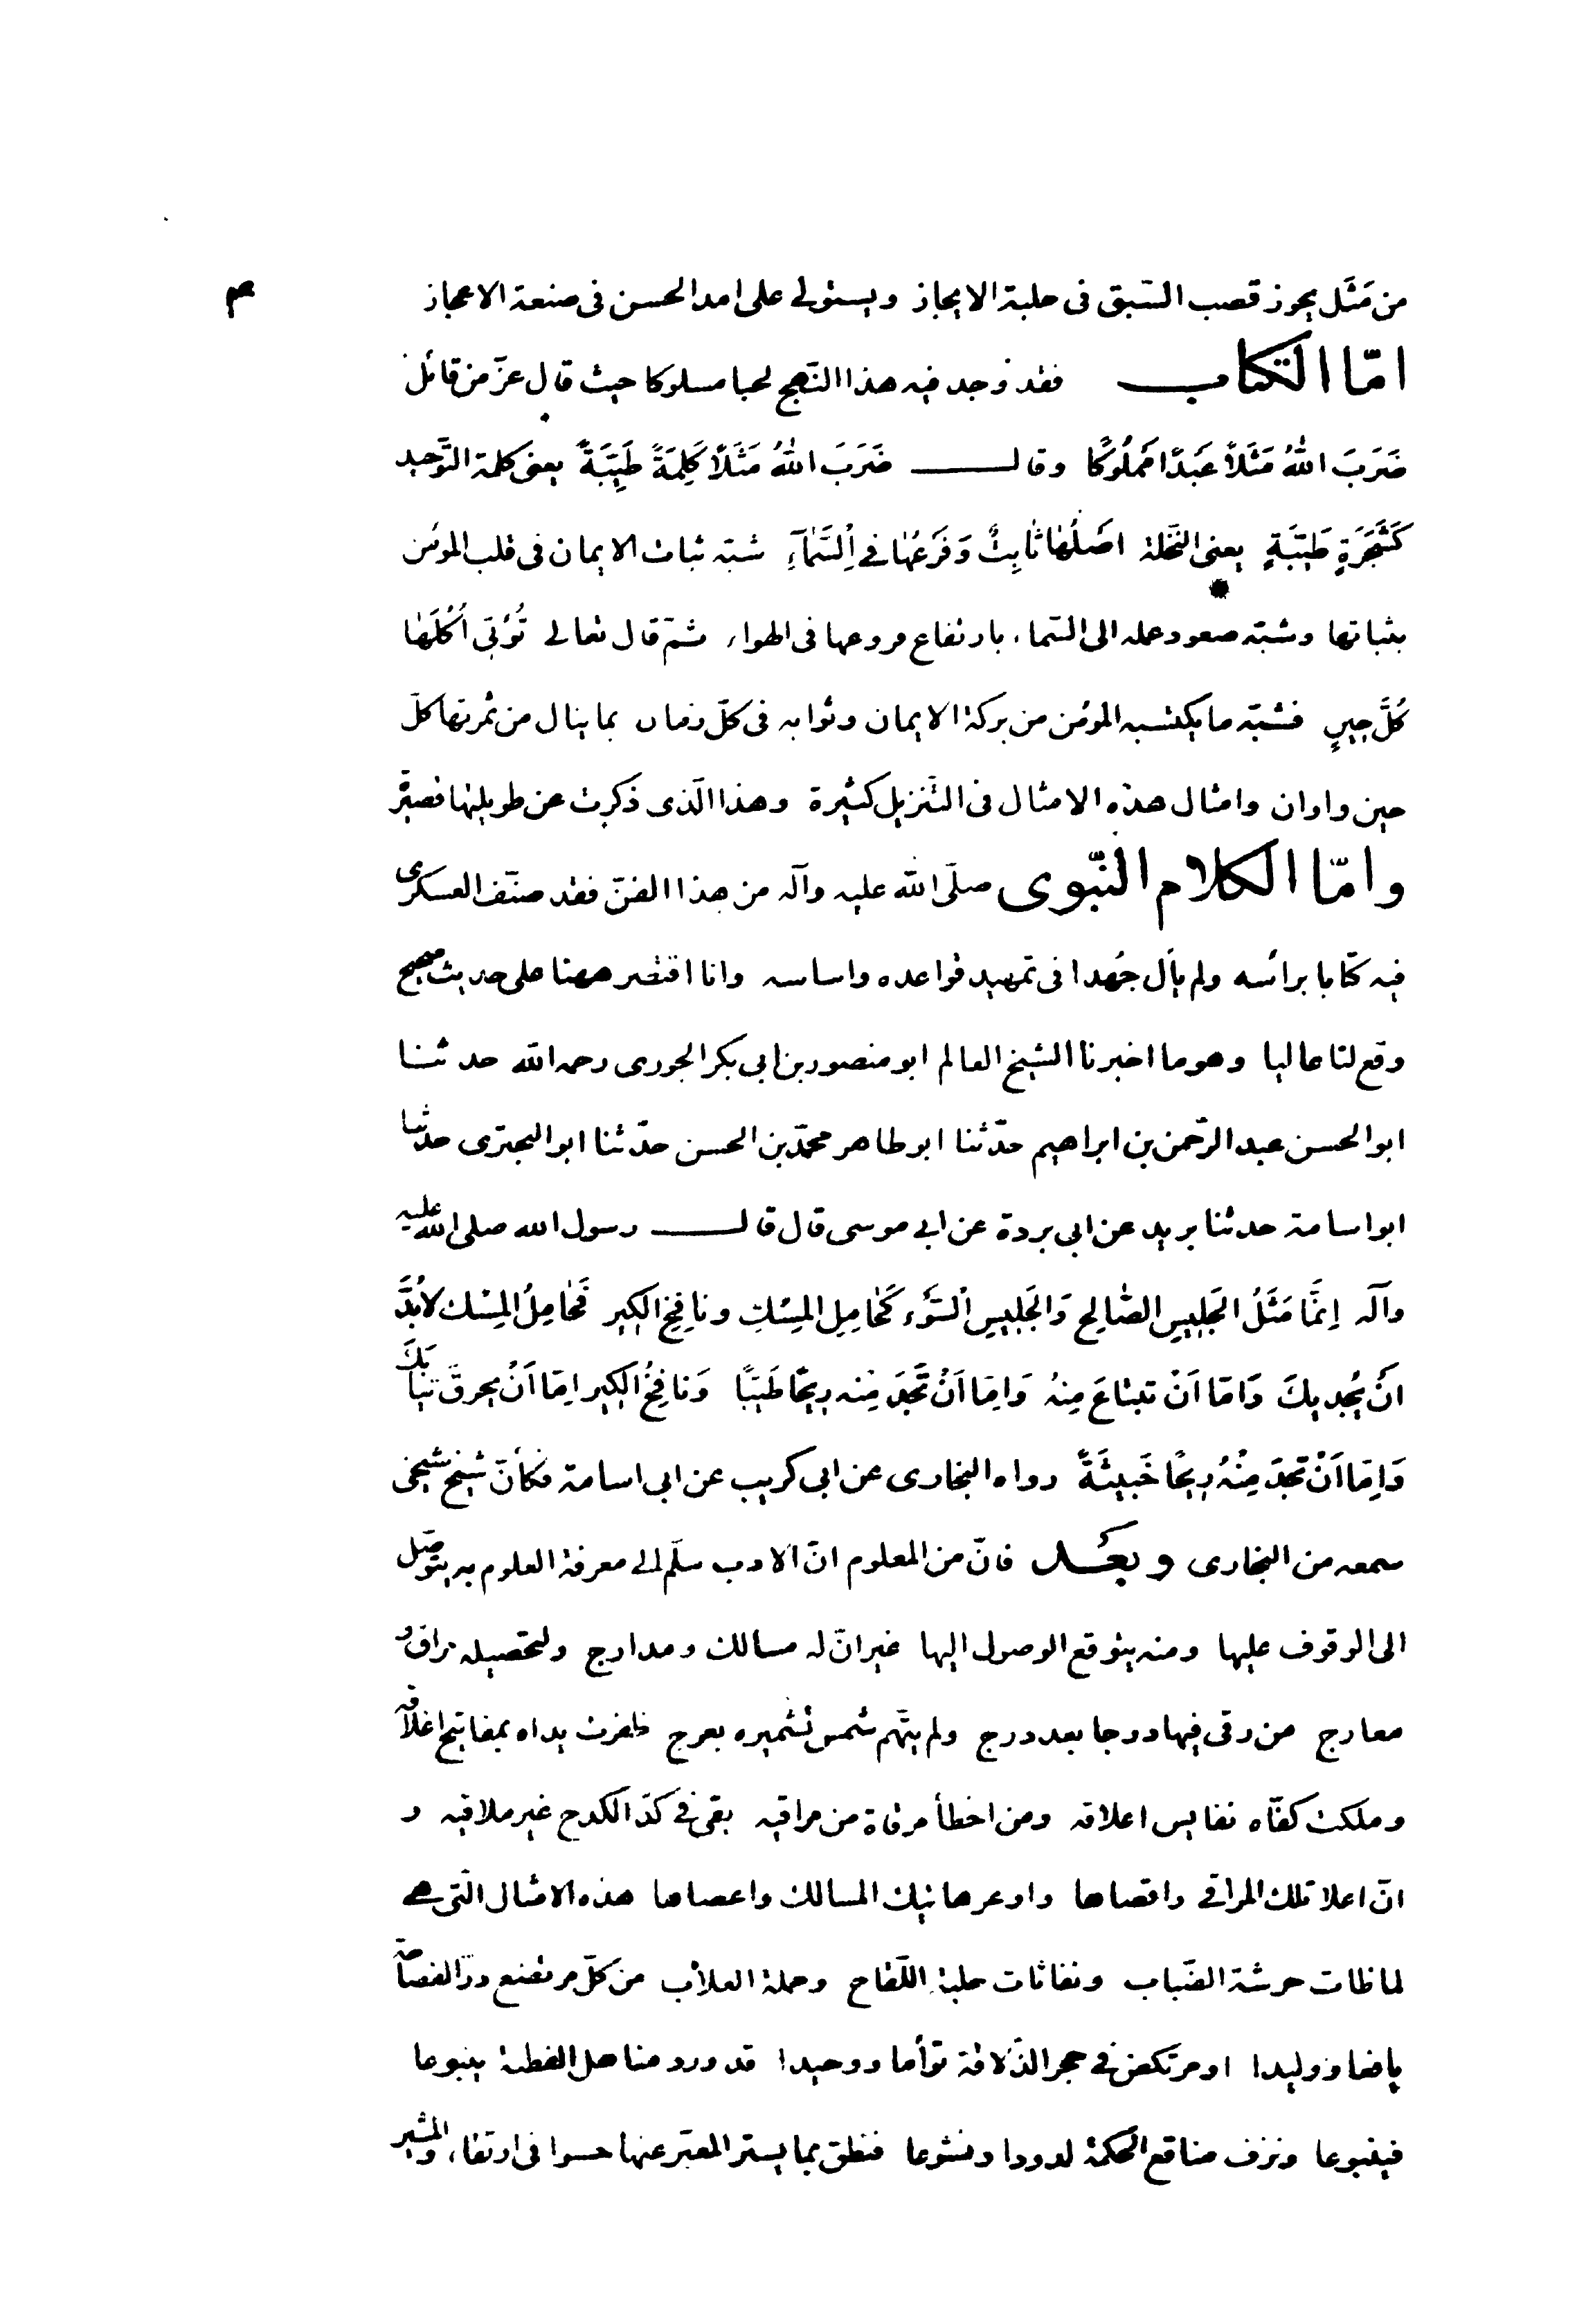 من مَثَل يحوز قصب السّبق فى حلبة الايجاز ويستولے على امد الحسن فى صنعة الاعجاز
م
امّا الكتاب فقد وجد فيه هذا النّهج لحبا مسلوكا حيث قال عزّ من قائل
ضَرَبَ اللهُ مَثَلاً عَبْدًا مَمْلُوكًا وقال ضَرَبَ اللهُ مَثَلًا كَلِمَةً طَيِّبَةً يعنى كلمة التّوحيد
كَشَجَرَةٍ طَيِّبَةٍ يعنى النّخلة اَصْلُهٰا ثٰابِتٌ وَفَرْعُهٰا فِے اِلسَّمٰآءِ شبّه ثبات الايمان فى قلب المؤمن
بثباتها وشبّه صعود عمله الى السّماء بارتفاع فروعها فى الهواء ثمّ قال تعالے تُؤْتى اُكُلَهٰا
كُلَّ حِينٍ فشبّه ما يكتسبه المؤمن من بركة الايمان وثوابه فى كلّ زمان بما ينال من ثمرتها كلّ
حين واوان وامثال هذه الامثال فى التّنزيل كثيرة وهذا الّذى ذكرت عن طويلها قصيرٌ
وامّا الكلام النّبوى صلّى الله عليه وآله من هذا الفنّ فقد صنّف العسكرى
فيه كتابا برأسه ولم يأل جُهدا فى تمهيد قواعده واساسه وانا اقتصر ههنا على حديث صحيح
وقع لنا عاليا وهو ما اخبرنا الشيخ العالم ابو منصور بن ابى بكر الجورى رحمه الله حدثنا
ابو الحسن عبد الرّحمن بن ابراهيم حدّثنا ابو طاهر محمّد بن الحسن حدّثنا ابو البحترى حدّثنا
ابو اسامة حدثنا بريد عن ابى بردة عن ابے موسى قال قال رسول الله صلى الله عليه
وآله اِنَّمٰا مَثَلُ الجَلِيسِ الصّٰالِحِ وَالجَلِيسِ السَّوْءِ كَحٰامِلِ المِسْكِ ونافِخِ الكِيرِ فَحٰامِلُ المِسْك لا بُدَّ
اَنْ يُجْدِيكَ وَامّا اَنْ تبتاعَ مِنهُ وَاِمّا اَنْ تَجِدَ مِنه رِيحًا طَيِّبًا وَنافِخُ الكِيرِ اِمّا اَنْ يحرِقَ ثيابَكَ
وَاِمّا اَنْ تجدَ مِنْهُ رِيحًا خَبيثَةً رواه البخارى عن ابى كريب عن ابى اسامة فكأنّ شيخ شيخى
سمعه من البخارى وبعد فانّ من المعلوم انّ الادب سلّم الے معرفة العلوم به يتوصّل
الى الوقوف عليها ومنه يتوقع الوصول اليها غير انّ له مسالك ومدارج ولتحصيله مراق و
معارج من رقى فيها درجا بعد درج ولم يتّهم شمس تشميره بعرج ظفرت يداه بمفاتيح اغلاقه
وملكت كفّاه نفايس اعلاقه ومن اخطأ مرقاة من مراقيه بقى فے كدّ الكدح غير ملاقيه و
انّ اعلا تلك المراقے واقصاها واوعر هاتيك المسالك واعصاها هذه الامثال الّتى هے
لماظات حرشة الضّباب ونفاثات حلبة اللّقاح وحملة العلاب من كلّ مرتضع درّ الفصاحة
يافعا ووليدا او مرتكض فے حجر الذّلاقة توأما ووحيدا قد ورد مناهل الفطنة ينبوعا
فينبوعا ونزف مناقع الحكمة لدودا ونشوعا فنطق بما يستر المعبّر عنها حسوا فى ارتغاء والمشير